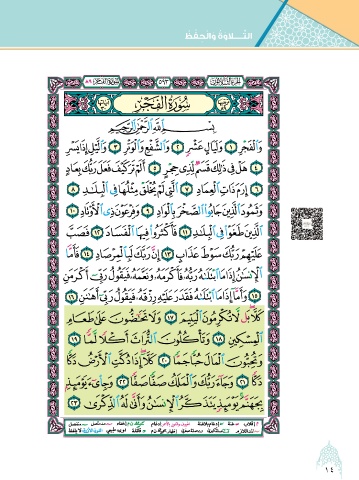 التـــلاوة والحفظ
سُورَةُ الفَجْرِ ٨٩
٥٩٣
الجزء الثلاثون
سُورَةُ الْفَجْرِ
بِسْمِ اللَّهِ الرَّحْمَٰنِ الرَّحِيمِ
وَالْفَجْرِ ١ وَلَيَالٍ عَشْرٍ ٢ وَالشَّفْعِ وَالْوَتْرِ ٣ وَاللَّيْلِ إِذَا يَسْرِ
٤ هَلْ فِي ذَٰلِكَ قَسَمٌ لِّذِي حِجْرٍ ٥ أَلَمْ تَرَ كَيْفَ فَعَلَ رَبُّكَ بِعَادٍ
٦ إِرَمَ ذَاتِ الْعِمَادِ ٧ الَّتِي لَمْ يُخْلَقْ مِثْلُهَا فِي الْبِلَادِ ٨
وَثَمُودَ الَّذِينَ جَابُوا الصَّخْرَ بِالْوَادِ ٩ وَفِرْعَوْنَ ذِي الْأَوْتَادِ ١٠
الَّذِينَ طَغَوْا فِي الْبِلَادِ ١١ فَأَكْثَرُوا فِيهَا الْفَسَادَ ١٢ فَصَبَّ
عَلَيْهِمْ رَبُّكَ سَوْطَ عَذَابٍ ١٣ إِنَّ رَبَّكَ لَبِالْمِرْصَادِ ١٤ فَأَمَّا
الْإِنسَٰنُ إِذَا مَا ابْتَلَىٰهُ رَبُّهُ فَأَكْرَمَهُ وَنَعَّمَهُ فَيَقُولُ رَبِّي أَكْرَمَنِ
١٥ وَأَمَّا إِذَا مَا ابْتَلَىٰهُ فَقَدَرَ عَلَيْهِ رِزْقَهُ فَيَقُولُ رَبِّي أَهَانَنِ ١٦
كَلَّا بَل لَّا تُكْرِمُونَ الْيَتِيمَ ١٧ وَلَا تَحَٰضُّونَ عَلَىٰ طَعَامِ
الْمِسْكِينِ ١٨ وَتَأْكُلُونَ التُّرَاثَ أَكْلًا لَّمًّا ١٩
وَتُحِبُّونَ الْمَالَ حُبًّا جَمًّا ٢٠ كَلَّا إِذَا دُكَّتِ الْأَرْضُ دَكًّا
دَكًّا ٢١ وَجَاءَ رَبُّكَ وَالْمَلَكُ صَفًّا صَفًّا ٢٢ وَجِايءَ يَوْمَئِذٍ
بِجَهَنَّمَ يَوْمَئِذٍ يَتَذَكَّرُ الْإِنسَٰنُ وَأَنَّىٰ لَهُ الذِّكْرَىٰ ٢٣
١٤